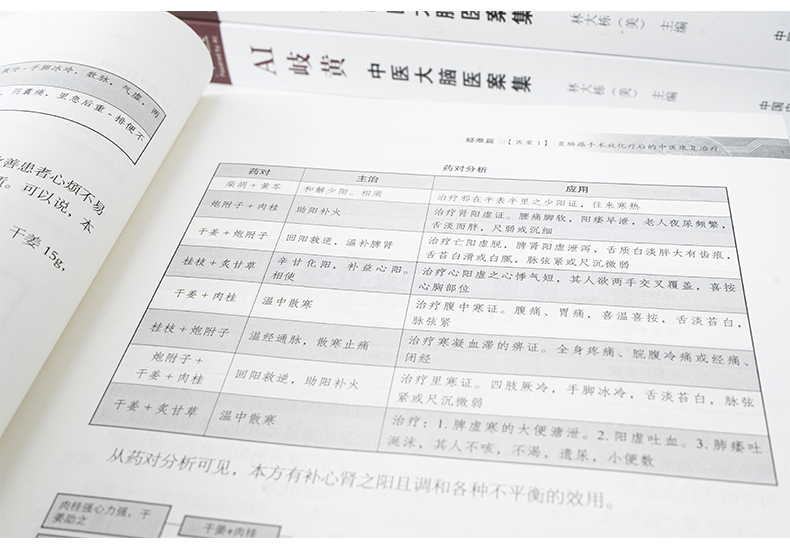 AI 岐黄 中医大脑医案集
林大栋（美） 主编
AI 岐黄 中医大脑医案集
林大栋（美） 主编
手脚冰冷，数脉，气虚，两
里急后重-排便不
善患者心烦不易
可以说，本
干姜 15g,
疑难篇 【医案1】 直肠癌手术放化疗后的中医恢复治疗
药对分析
药对 主治 应用
柴胡+黄芩 和解少阳。相须 治疗邪在半表半里之少阳证，往来寒热
炮附子+肉桂 助阳补火 治疗肾阳虚证。腰痛脚软，阳痿早泄，老人夜尿频繁，
舌淡而胖，尺弱或沉细
干姜+炮附子 回阳救逆，温补脾肾 治疗亡阳虚脱，脾肾阳虚泄泻，舌质白淡胖大有齿痕，
舌苔白滑或白腻，脉弦紧或尺沉微弱
桂枝+炙甘草 辛甘化阳，补益心阳。
相使
治疗心阳虚之心悸气短，其人欲两手交叉覆盖，喜按
心胸部位
干姜+肉桂 温中散寒 治疗腹中寒证。腹痛、胃痛，喜温喜按，舌淡苔白，
脉弦紧
桂枝+炮附子 温经通脉，散寒止痛 治疗寒凝血滞的痹证。全身疼痛、脘腹冷痛或经痛、
闭经
炮附子+
干姜+肉桂
回阳救逆，助阳补火 治疗里寒证。四肢厥冷，手脚冰冷，舌淡苔白，脉弦
紧或尺沉微弱
干姜+炙甘草 温中散寒 治疗：1. 脾虚寒的大便溏泄。2. 阳虚吐血。3. 肺痿吐
涎沫，其人不咳，不渴，遗尿，小便数
从药对分析可见，本方有补心肾之阳且调和各种不平衡的效用。
肉桂强心力强，干
姜助之
干姜+肉桂